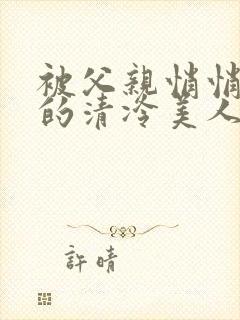 被父親悄悄
的清冷美人
許晴